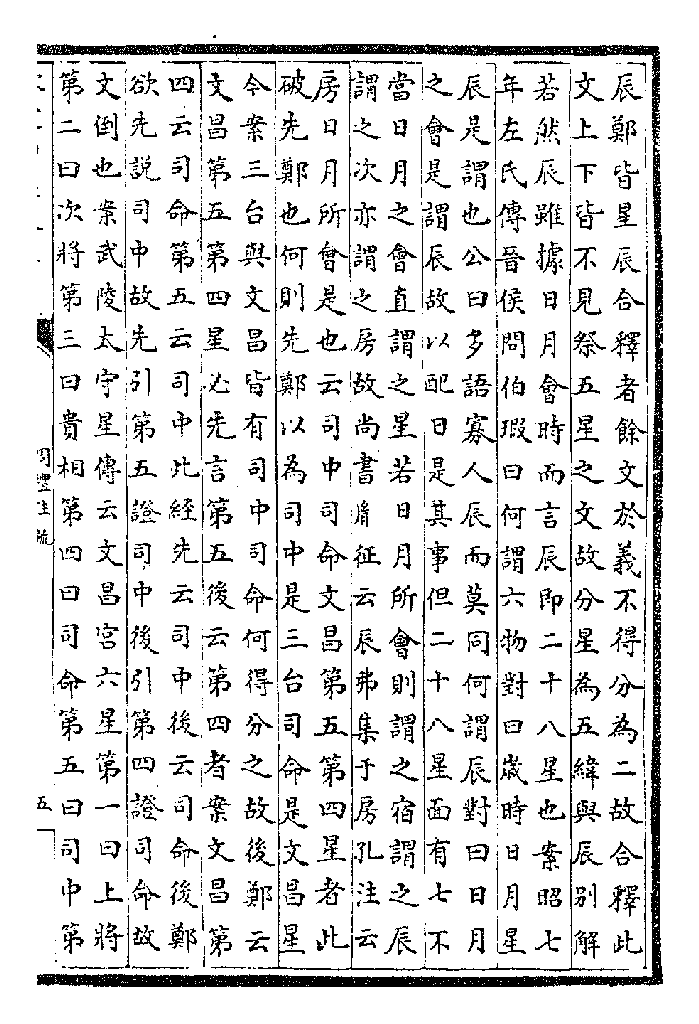 辰鄭皆星辰合釋者餘文於義不得分為二故合釋此
文上下皆不見祭五星之文故分星為五緯與辰別解
若然辰雖據日月會時而言辰即二十八星也案昭七
年左氏傳晉侯問伯瑕曰何謂六物對曰歲時日月星
辰是謂也公曰多語寡人辰而莫同何謂辰對曰日月
之會是謂辰故以配日是其事但二十八星面有七不
當日月之會直謂之星若日月所會則謂之宿謂之辰
謂之次亦謂之房故尚書胤征云辰弗集于房孔注云
房日月所會是也云司中司命文昌第五第四星者此
破先鄭也何則先鄭以為司中是三台司命是文昌星
今案三台與文昌皆有司中司命何得分之故後鄭云
文昌第五第四星必先言第五後云第四者案文昌第
四云司命第五云司中此經先云司中後云司命後鄭
欲先説司中故先引第五證司中後引第四證司命故
文倒也案武陵太守星傳云文昌宫六星第一曰上將
第二曰次將第三曰貴相第四曰司命第五曰司中第
周禮注疏
五